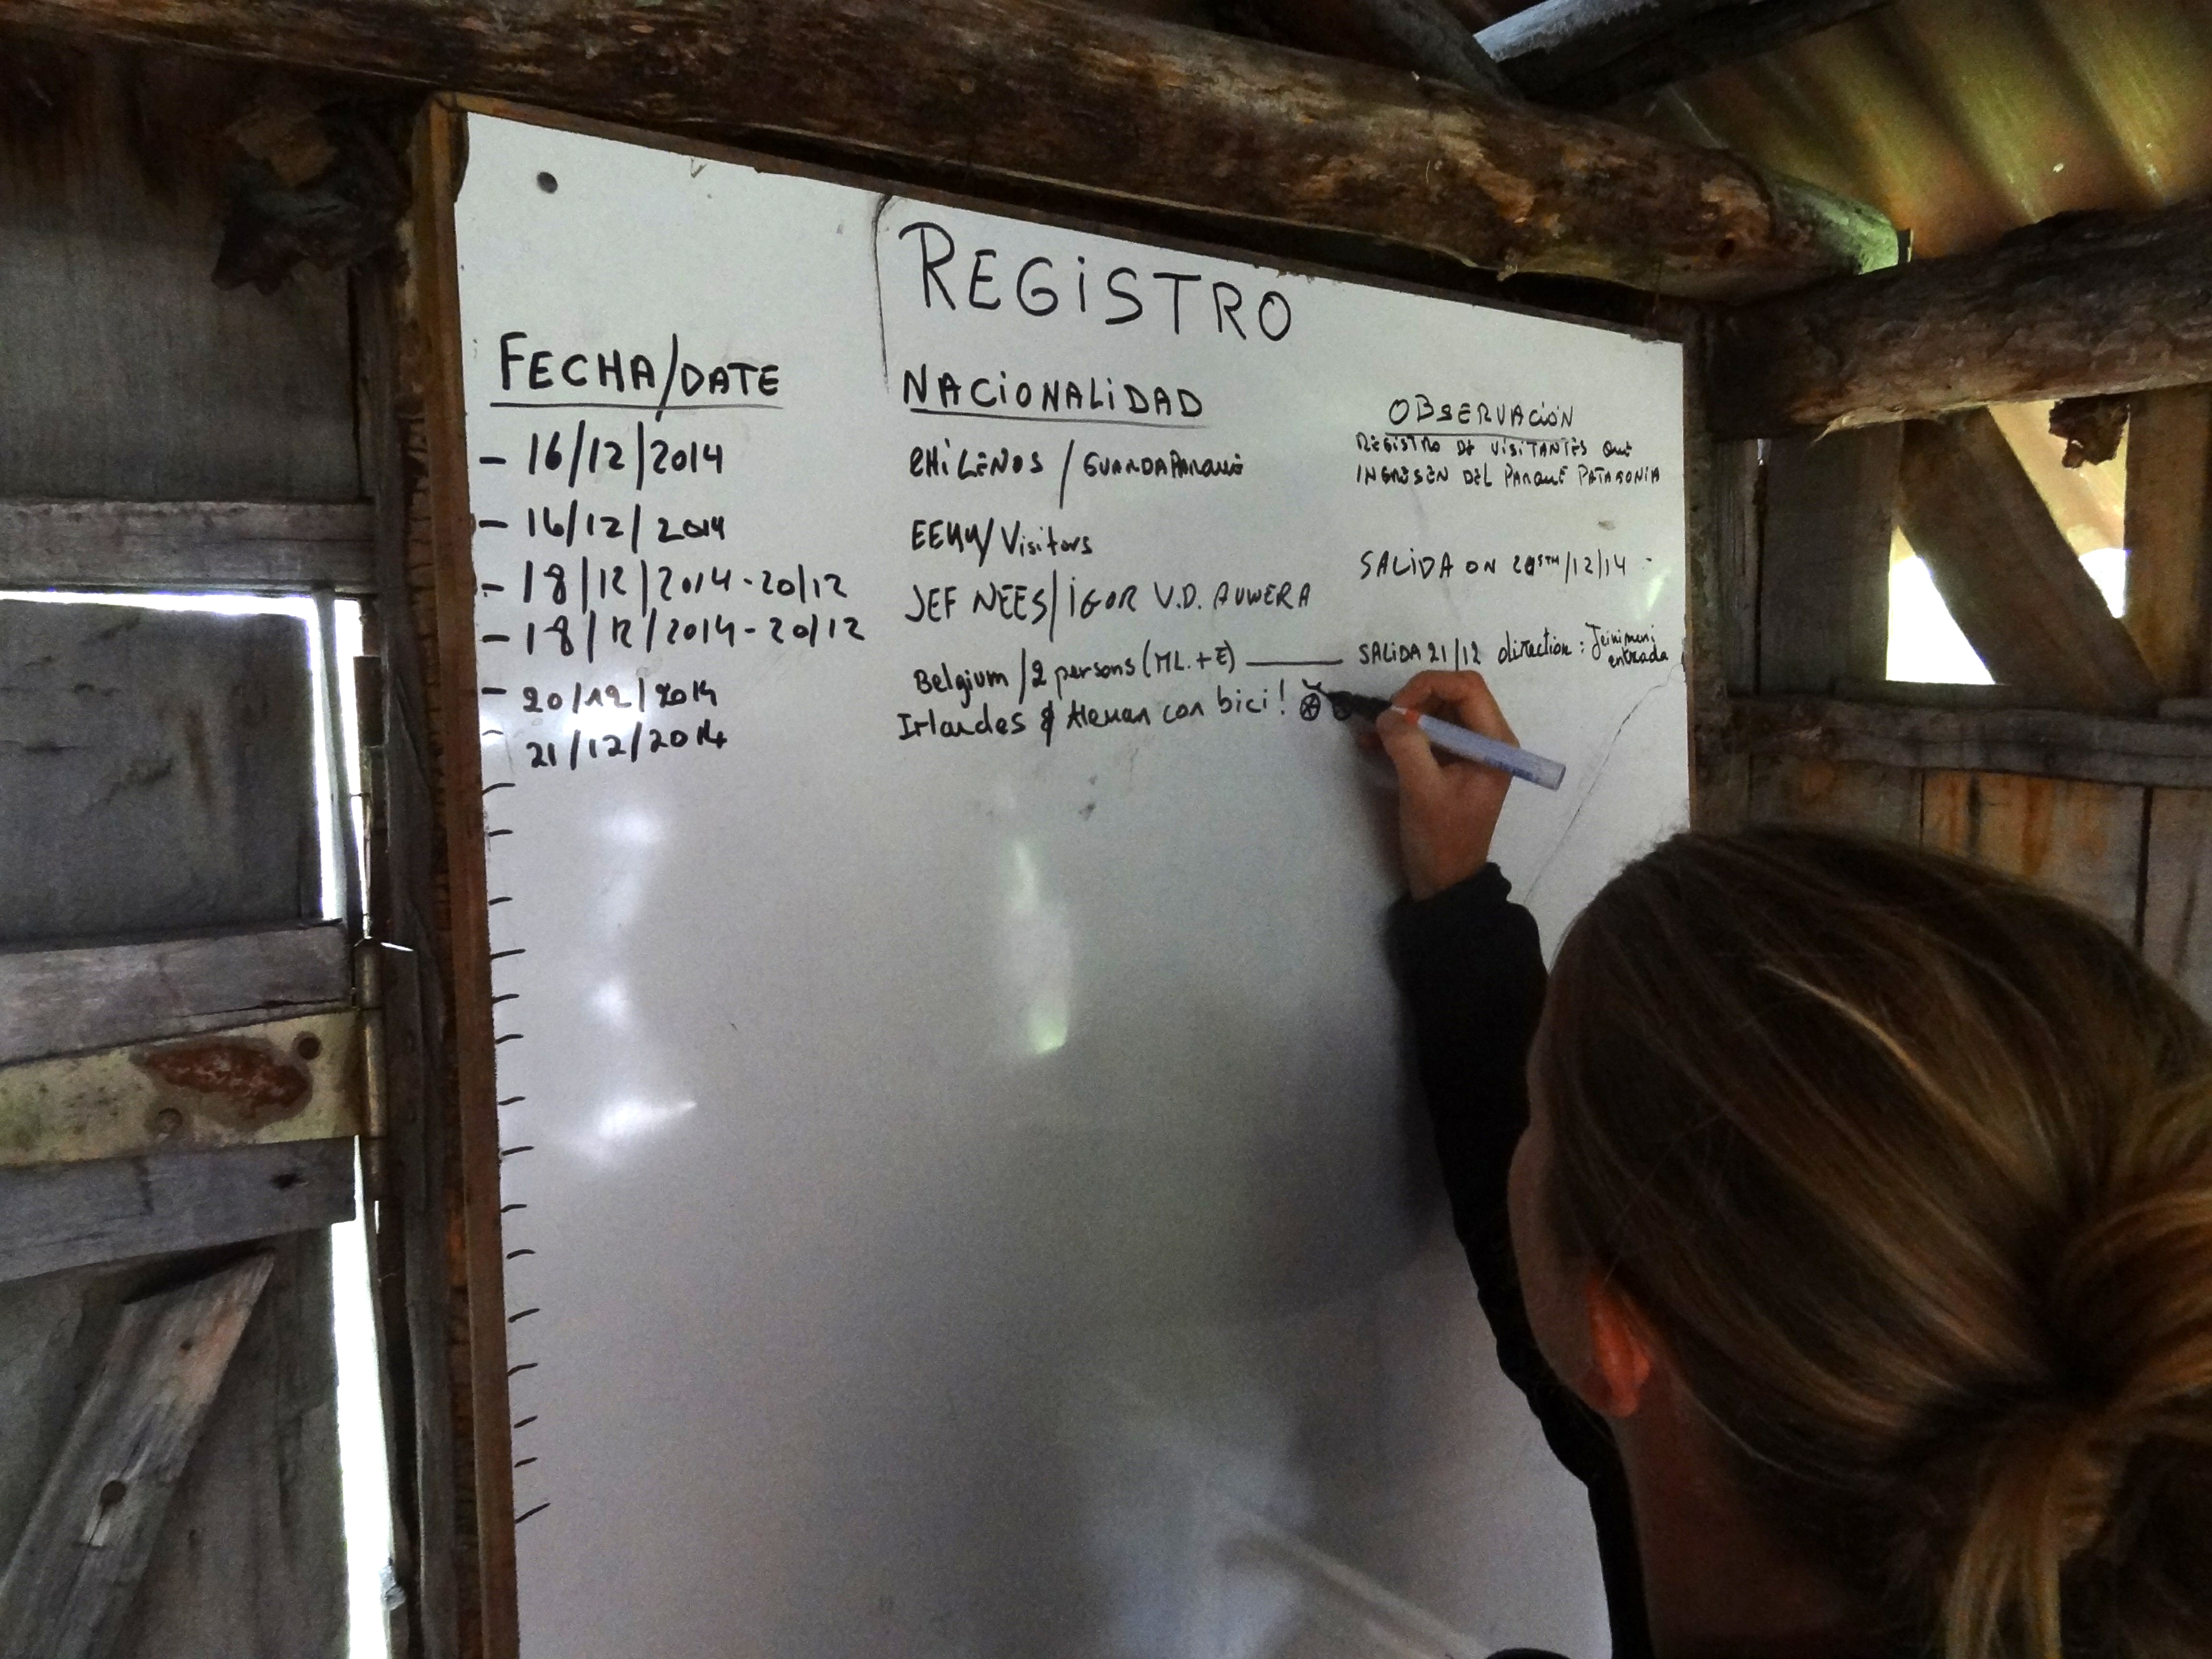 REGISTRO
FECHA/DATE NACIONALIDAD OBSERVACIÓN
- 16/12/2014 CHILENOS / GUARDAPARQUE REGISTRO DE VISITANTES QUE
INGRESEN DEL PARQUE PATAGONIA
- 16/12/2014 EEUU/Visitors
- 18/12/2014-20/12 JEF NEES/IGOR V.D. AUWERA SALIDA ON /12/14 -
- 18/12/2014-20/12
- 20/12/2014 Belgium/2 persons (ML.+E) SALIDA 21/12 direction: Jeinimeni
entrada
21/12/2014 Irlandes & Aleman con bici!